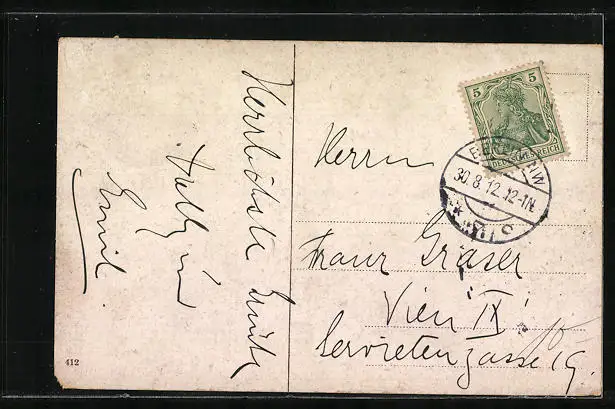 Herrlichste Grüße
Emil
412
Herrn
Franz Gräser
Wien IX.
Servietengasse 19.
5 5
DEUTSCHES REICH
30.8.12.12-1N.